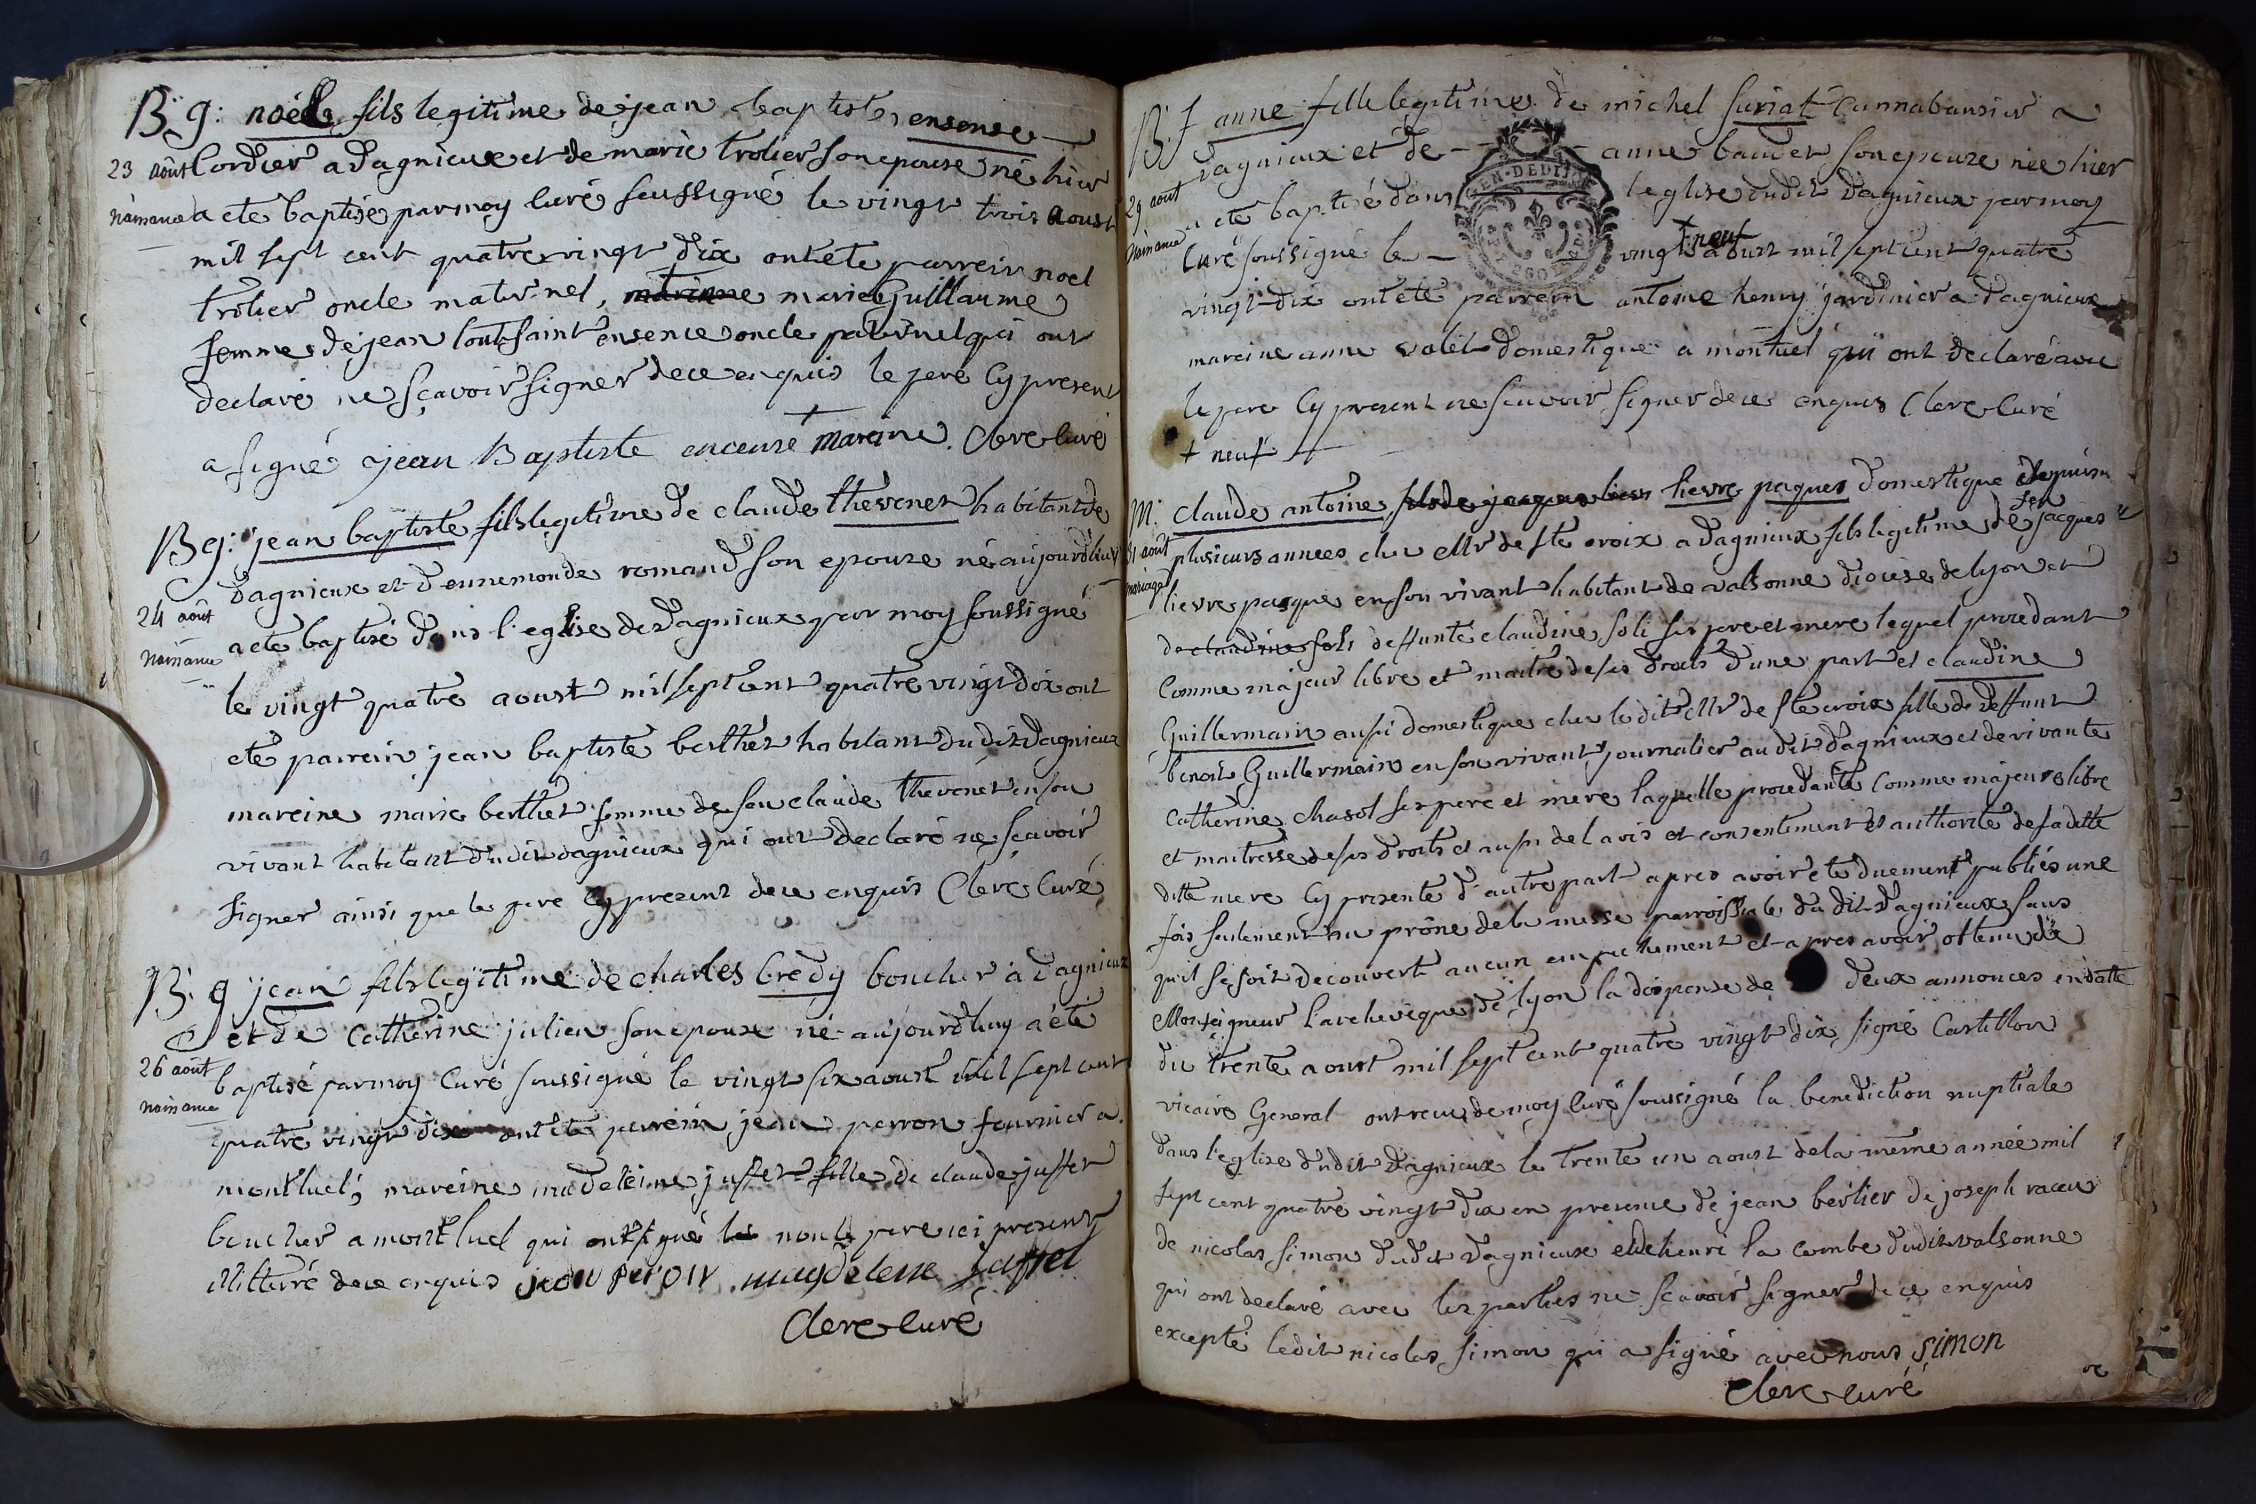 B. g: noël fils legitime de jean baptiste ensense
23 août
Cordier a dagnieux et de marie trolier son epouse né hier
naissance
a ete baptisé par moy curé soussigné le vingt trois aoust
mil sept cent quatre vingt dix ont ete parrein noel
trolier oncle maternel, marie Guillaume
femme de jean toutsaint ensence oncle paternel qui ont
declaré ne sçavoir signer de ce enquis le pere cy present
a signé jean Baptiste encense + mareine. Clerc curé
B g: jean baptiste fils legitime de claude thevenet habitant de
dagnieux et d'ennemonde romand son epouze né aujourdhuy
24 août
naissance
a ete baptisé dans l'eglise de dagnieux par moy soussigné
le vingt quatre aoust mil sept cent quatre vingt dix ont
eté parrein jean baptiste berthet habitant dudit dagnieux
mareine marie berthet femme de feu claude thevenet en son
vivant habitant dudit dagnieux qui ont declaré ne sçavoir
signer ainsi que le pere cy present de ce enquis Clerc Curé
B. g jean fils legitime de charles credy boucher à dagnieux
et de Catherine julien son epouse né aujourdhuy a été
26 août
naissance
baptisé par moy Curé soussigné le vingt six aoust mil sept cent
quatre vingt dix ont ete parrein jean perron fournier a
montluel, mareine madeleine juffet fille de claude juffet
boucher a montluel qui ont signé non le pere ici present
illitterré de ce enquis jean peron magdeleine juffet
Clerc curé
B. f anne fille legitime de michel suriat Cannabassier a
dagnieux et de - - anne baudet son epouze née hier
29 août
naissance
a ete baptisé dans l'eglise dudit dagnieux par moy
GEN. DEDIT
Curé soussigné le - vingt + neuf aoust mil sept cent quatre
vingt-dix ont eté parrein antoine henry jardinier a dagnieux
mareine anne valet domestique à montluel qui ont declaré avec
le pere cy present ne sçavoir signer de ce enquis Clerc Curé
+ neuf
M. claude antoine fils de jacques lievre paques domestique depuis
31 août
mariage
plusieurs annees chez Mr de ste croix a dagnieux fils legitime de feu jacques
lievre pasque en son vivant habitant de valsonne diocese de lyon et
de claudine foli deffunte claudine foli ses pere et mere lequel procedant
Comme majeur libre et maitre de ses droits d'une part et claudine
Guillermain aussi domestique chez ledit Mr de ste croix fille de deffunt
benoit Guillermain en son vivant journalier audit dagnieux et de vivante
Catherine chasot ses pere et mere laquelle procedante Comme majeure libre
et maitresse de ses droits et aussi de l avis et consentement et authorité de sa ditte
ditte mere cy presente d'autre part apres avoir ete duement publiés une
fois seulement au prône de la messe parroissiale du dit dagnieux sans
qu'il se soit decouvert aucun empechement et apres avoir obtenu de
Monseigneur l'archeveque de lyon la dispense de deux annonces en datte
du trente aoust mil sept cent quatre vingt dix signé Castillon
vicaire General ont recu de moy Curé soussigné la benediction nuptiale
dans l'eglise dudit dagnieux le trente un aoust de la meme année mil
sept cent quatre vingt dix en presence de jean berlier de joseph
de nicolas simon dudit dagnieux et de henri la combe dudit valsonne
qui ont declaré avec les parties ne sçavoir signer de ce enquis
excepté ledit nicolas simon qui a signé avec nous simon
Clerc curé